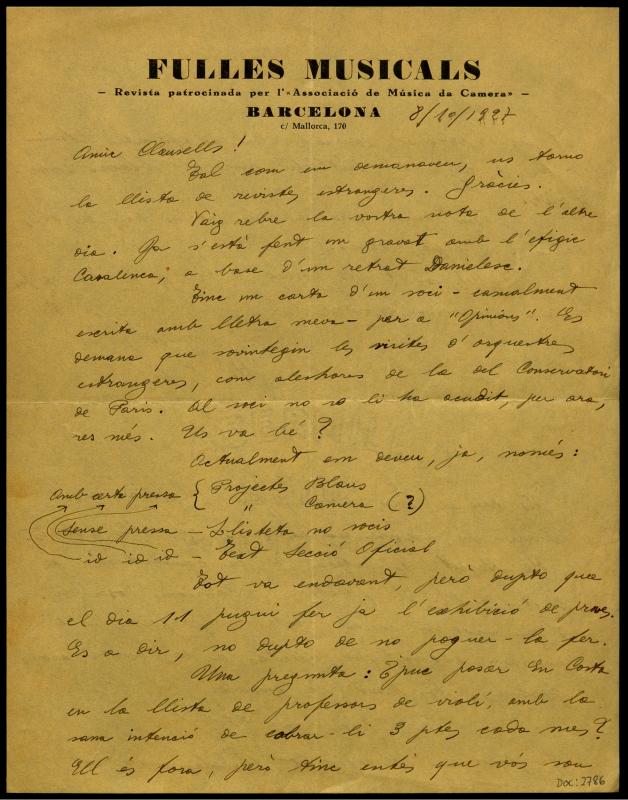 FULLES MUSICALS
— Revista patrocinada per l'«Associació de Música da Camera» —
BARCELONA
c/ Mallorca, 170
8/10/1927
Amic Clausells!
Tal com em demanaveu, us torno
la llista de revistes estrangeres. Gràcies.
Vaig rebre la vostra nota de l'altre
dia. Ja s'està fent un gravat amb l'efigie
Casalenca, a base d'un retrat Danielesc.
Tinc un carta d'un soci - casualment
escrita amb lletra meva - per a "Opinions". Es
demana que sovintegin les visites d'orquestres
estrangeres, com aleshores de la del Conservatori
de Paris. Al soci no se li ha acudit, per ara,
res més. Us va bé?
Actualment em deveu, ja, només:
Amb certa pressa { Projectes Blaus
" Camera (?)
Sense pressa - Llisteta no socis
id id id - Text Secció Oficial
Tot va endavant, però dupto que
el dia 11 pugui fer ja l'exhibició de proves.
Es a dir, no dupto de no poguer-la fer.
Una pregunta: Puc posar En Costa
en la llista de professors de violí, amb la
sana intenció de cobrar-li 3 ptes cada mes?
Ell és fora, però tinc entés que vós sou
DOC: 2786